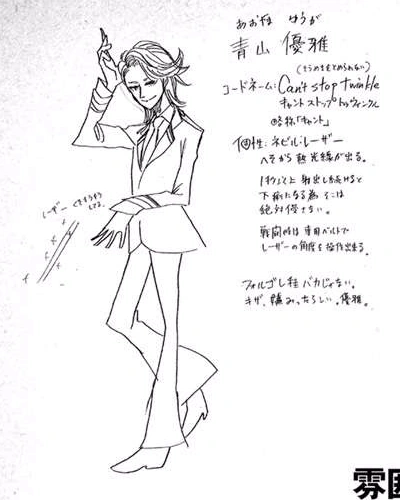 あおやま ゆうが
青山 優雅
(きらめきをとめられない)
コードネーム:Can't stop twinkle
キャント ストップ トゥウィンクル
略称「キャント」
個性:ネビル・レーザー
へそから熱光線が出る。
1秒以上射出し続けると
下痢になる為そこは
絶対侵さない。
戦闘時は専用ベルトで
レーザーの角度を操作出来る。
レーザー
フォルゴレ程バカじゃない。
キザ、嫌みったらしい。優雅。
雰囲